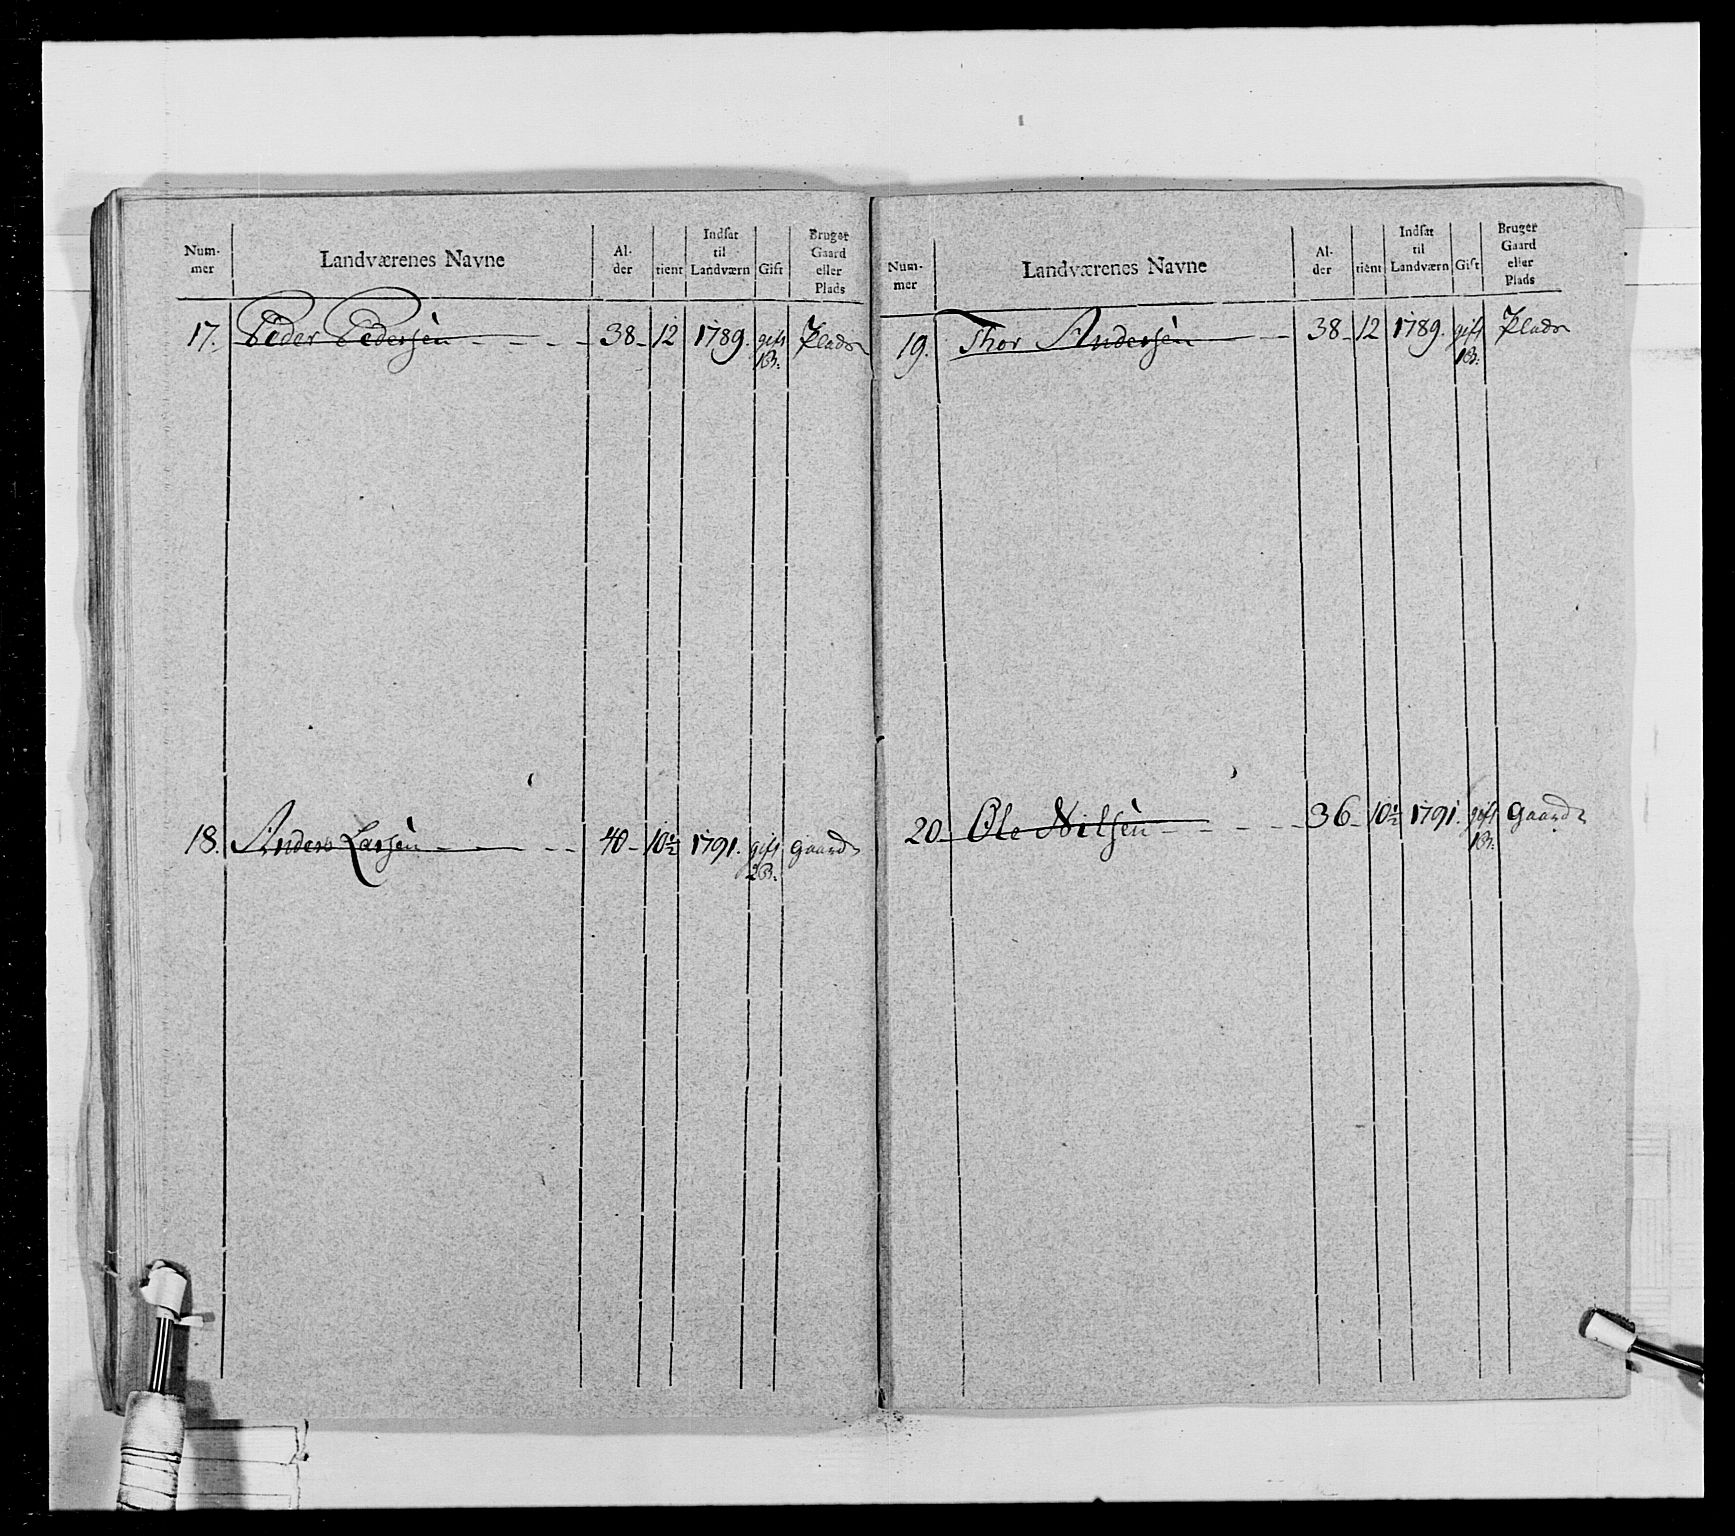 Num-
mer
Landværenes Navne
Al-
der
tient
Indsat
til
Landværn
Gift
Bruger
Gaard
eller
Plads
17. Peder Pedersen 38 12 1789. gift Plads
1B:
18. Anders Larsen 40 10½ 1791. gift gaard
2B:
Num-
mer
Landværenes Navne
Al-
der
tient
Indsat
til
Landværn
Gift
Bruger
Gaard
eller
Plads
19. Thor Andersen 38 12 1789. gift Plads
1B:
20 Ole Nilsen 36 10½ 1791. gift Gaard
1B: